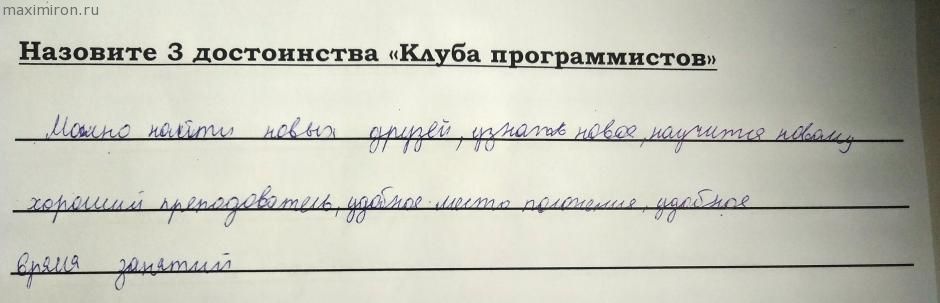 maximiron.ru
Назовите 3 достоинства «Клуба программистов»
Можно найти новых друзей, узнать новое, научится новому
хороший преподователь, удобное место положение, удобное
время занятий